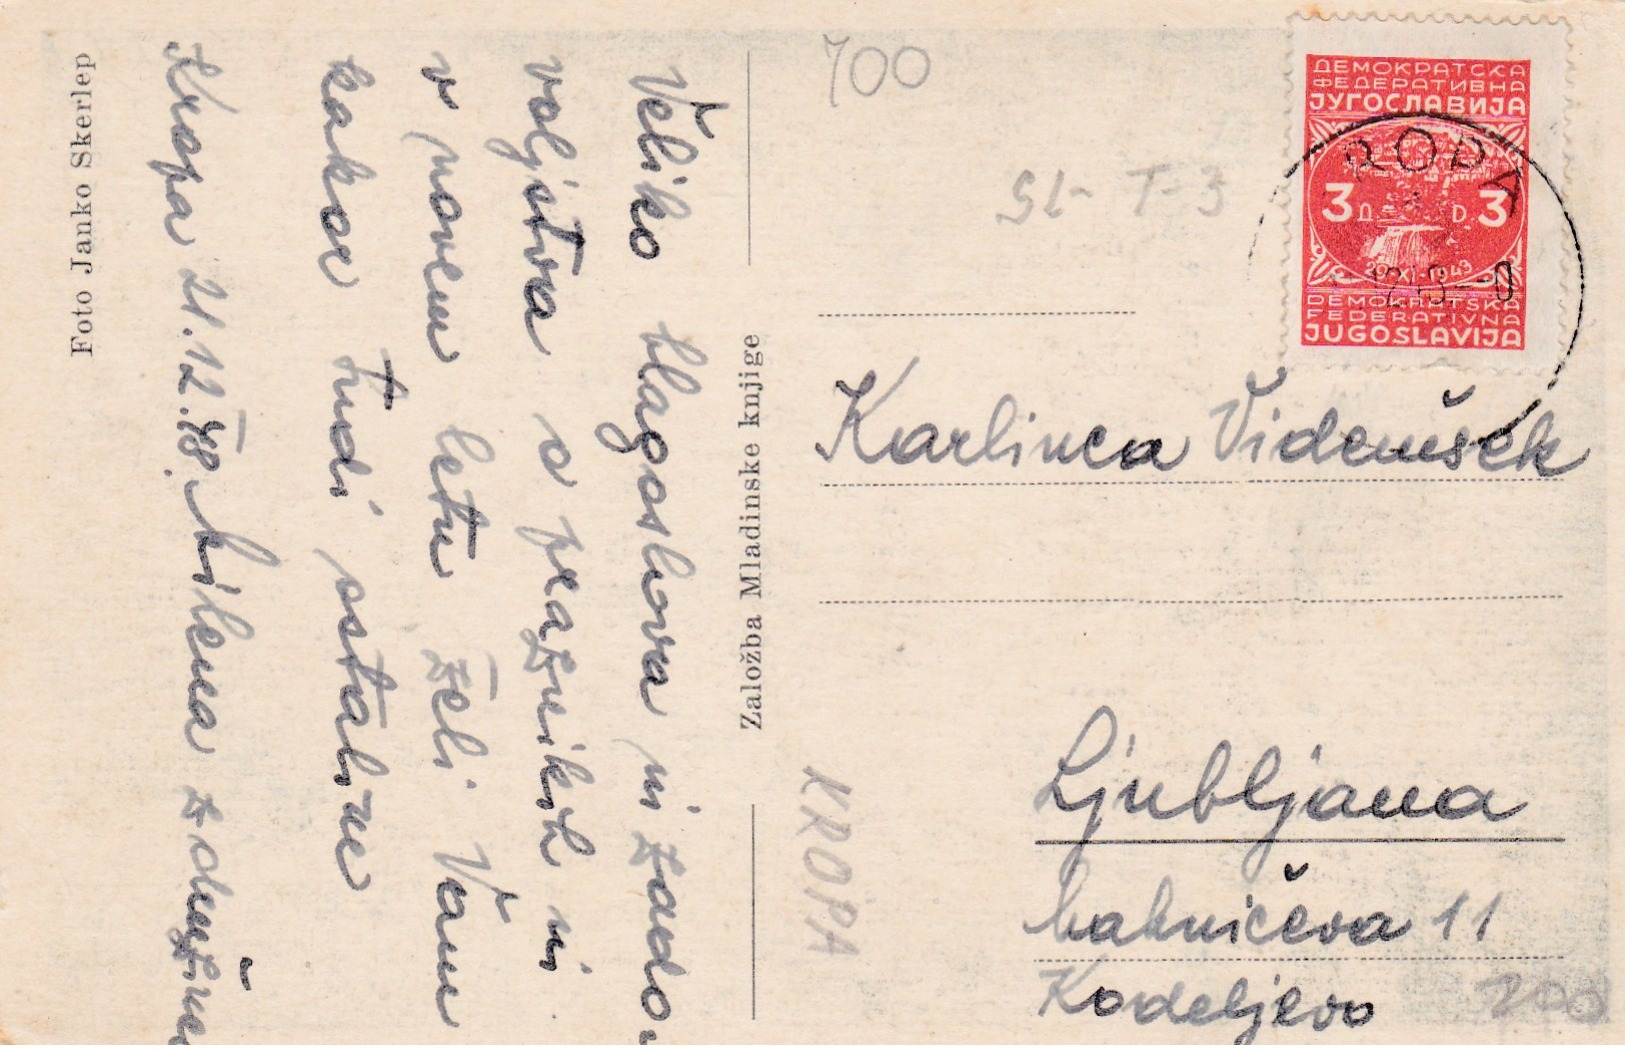 Foto Janko Skerlep
Založba Mladinske knjige
Veliko blagoslova in zado-
voljstva o praznikih in
v novem letu želi Vam
kakor tudi ostalim
Kropa 21.12.48. Milena z družino
700
SL- T-3
ДЕМОКРАТСКА
ФЕДЕРАТИВНА
ЈУГОСЛАВИЈА
3 D 3
29·XI·1943
DEMOKRATSKA
FEDERATIVNA
JUGOSLAVIJA
ROPA
Karlinca Videmšek
Ljubljana
11
Kodeljevo
KROPA
200